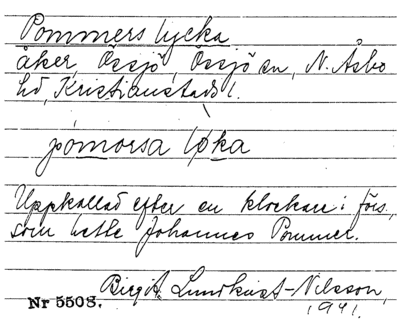 Pommers lycka
åker, Össjö, Össjö sn, N. Åsbo
hd, Kristianstads l.
pomorsa løka
Uppkallad efter en klockare i förs.,
som hette Johannes Pommer.
Birgit Lundkvist-Nilsson,
Nr 5508. 1941.